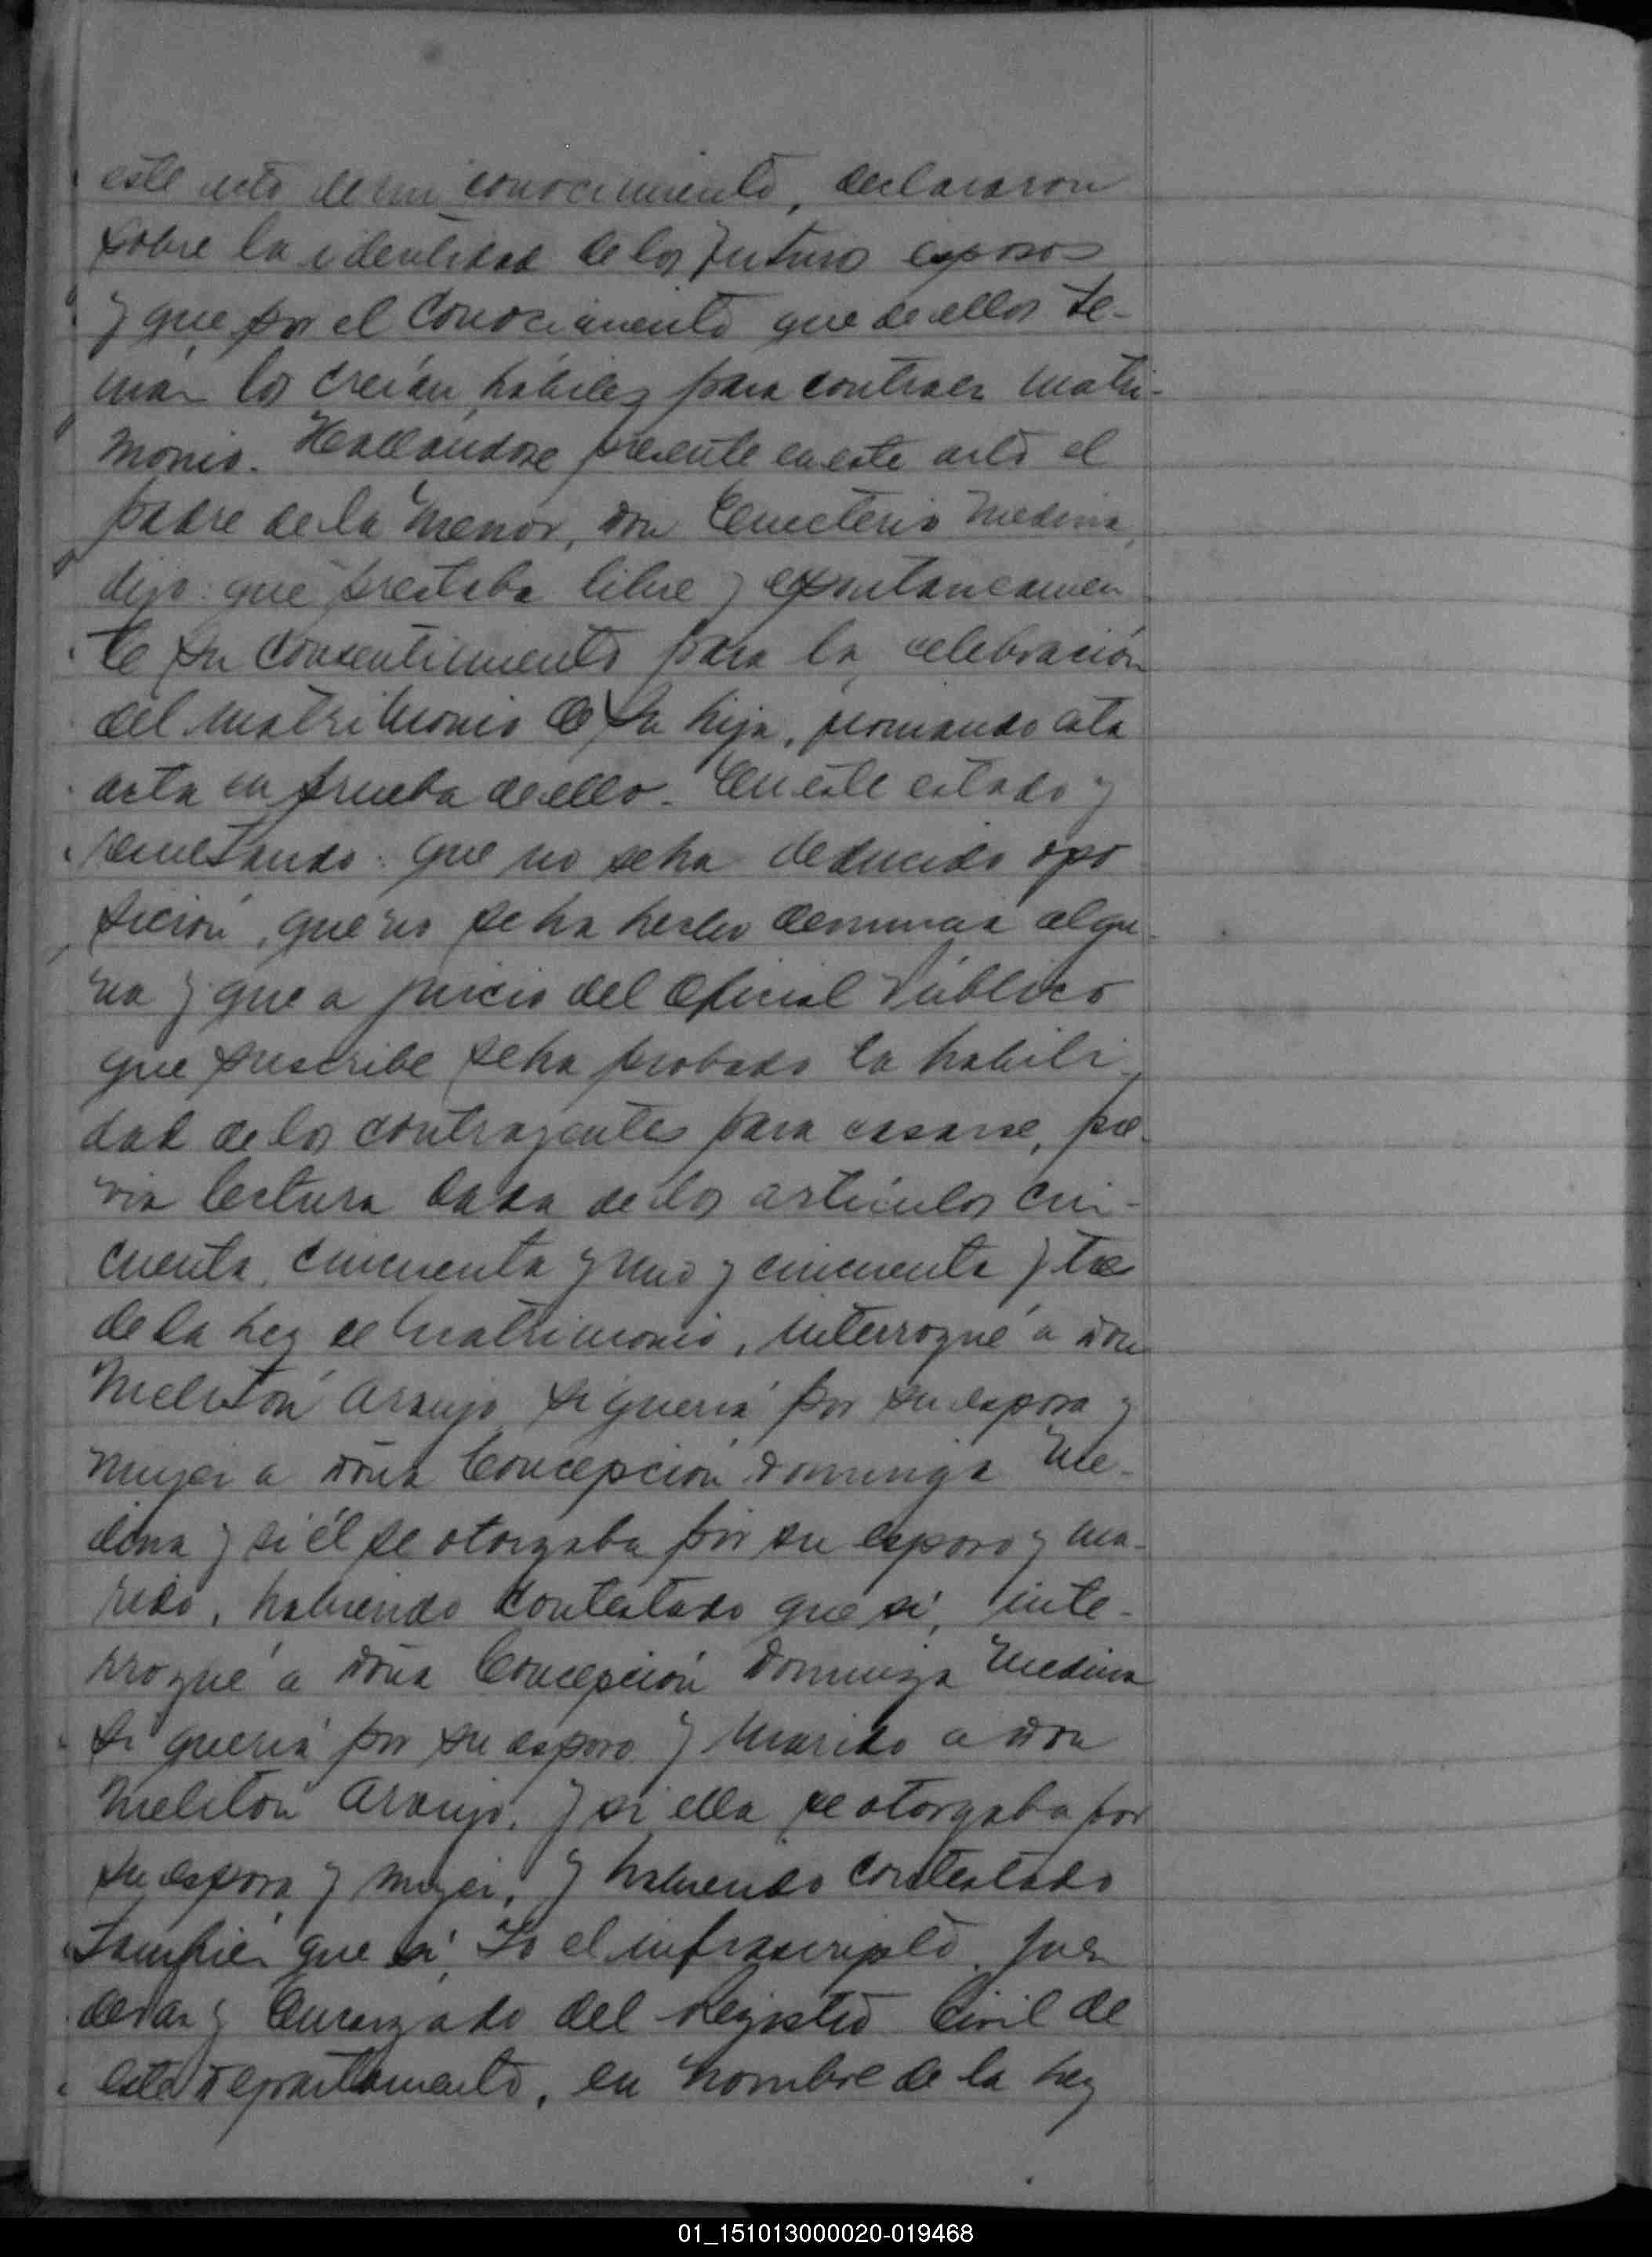 este acto de mi conocimiento, declararon
sobre la identidad de los futuros esposos
y que por el conocimiento que de ellos te-
nían los creían hábiles para contraer matri-
monio. Hallándose presente en este acto el
padre de la menor, don Emeterio Medina,
dijo: que prestaba libre y espontaneamen
te su consentimiento para la celebración
del matrimonio de su hija, firmando esta
acta en prueba de ello. En este estado y
resultando: que no se ha deducido opo
sición, que no se ha hecho denuncia algu-
na y que a juicio del Oficial Público
que suscribe se ha probado la habili-
dad de los contrayentes para casarse, pre-
via lectura dada de los artículos cin-
cuenta, cincuenta y uno y cincuenta y tres
de la Ley de Matrimonio, interrogué a don
Melitón Araujo si quería por su esposa y
mujer a doña Concepción Dominga Me-
dina y si él se otorgaba por su esposo y ma-
rido, habiendo contestado que sí, inte-
rrogué a doña Concepción Dominga Medina
si quería por su esposo y marido a don
Melitón Araujo, y si ella se otorgaba por
su esposa y mujer, y habiendo contestado
también que sí, Yo el infrascripto, Juez
de Paz y Encargado del Registro Civil de
este Departamento, en nombre de la Ley
01_151013000020-019468